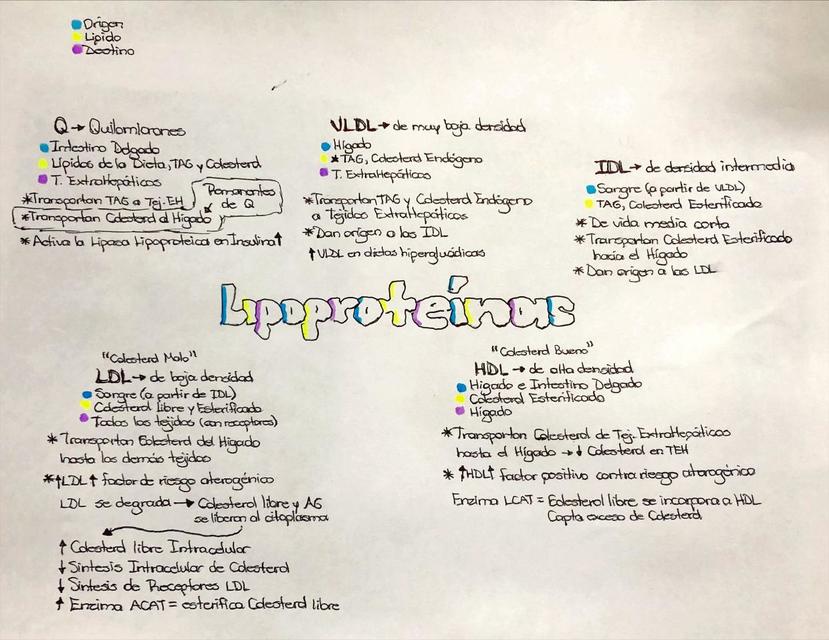 Origen
Lípido
Destino
Q → Quilomicrones
Intestino Delgado
Lípidos de la Dieta, TAG y Colesterol
T. Extrahepáticos
*Transportan TAG a Tej. EH
Remanentes de Q
*Transportan Colesterol al Hígado
* Activa la Lipasa Lipoproteica en Insulina↑
VLDL → de muy baja densidad
Hígado
*TAG, Colesterol Endógeno
T. Extrahepáticos
*Transportan TAG y Colesterol Endógeno
a Tejidos Extrahepáticos
*Dan origen a las IDL
↑VLDL en dietas hiperglucídicas
IDL → de densidad intermedia
Sangre (a partir de VLDL)
TAG, Colesterol Esterificado
* De vida media corta
* Transportan Colesterol Esterificado
hacia el Hígado
* Dan origen a las LDL
Lipoproteínas
"Colesterol Malo"
LDL → de baja densidad
Sangre (a partir de IDL)
Colesterol Libre y Esterificado
Todos los tejidos (con receptores)
* Transportan Colesterol del Hígado
hasta los demás tejidos
*↑LDL↑ factor de riesgo aterogénico
LDL se degrada → Colesterol libre y AG
se liberan al citoplasma
↑ Colesterol libre Intracelular
↓ Síntesis Intracelular de Colesterol
↓ Síntesis de Receptores LDL
↑ Enzima ACAT = esterifica Colesterol libre
"Colesterol Bueno"
HDL → de alta densidad
Hígado e Intestino Delgado
Colesterol Esterificado
Hígado
*Transportan Colesterol de Tej. Extrahepáticos
hasta el Hígado → ↓ Colesterol en TEH
* ↑HDL↑ factor positivo contra riesgo aterogénico
Enzima LCAT = Colesterol libre se incorpora a HDL
Capta exceso de Colesterol